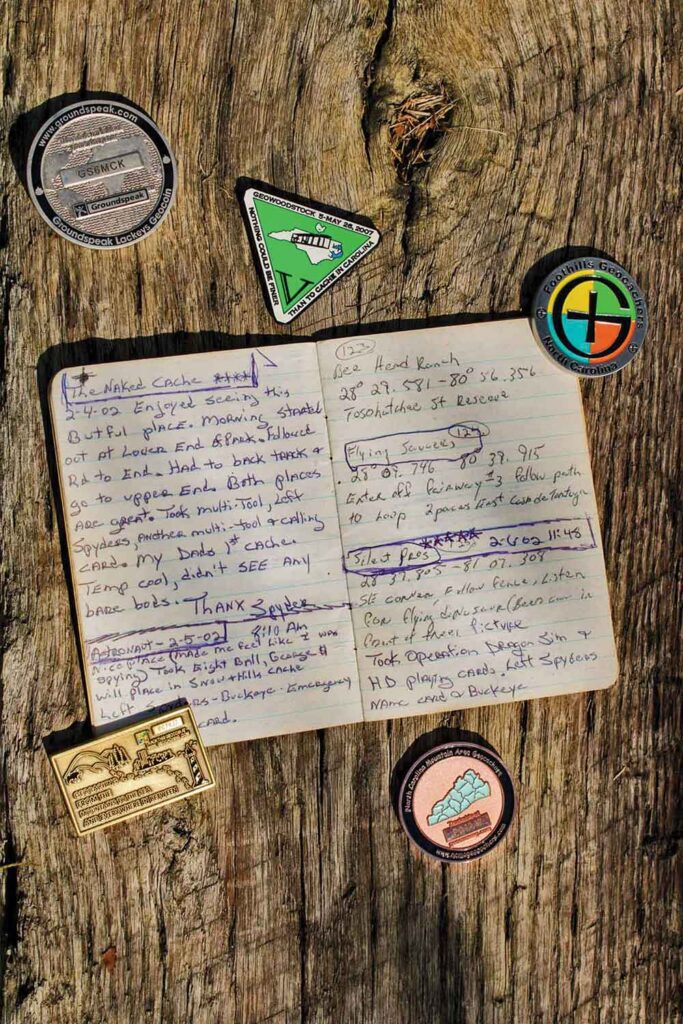 www.groundspeak.com
GS6MCK
Groundspeak
Groundspeak Lackeys Geocoin
GEOWOODSTOCK 5-MAY 26, 2007
NOTHING COULD BE FINER
THAN TO CACHE IN CAROLINA
Foothills Geocachers
North Carolina
The Naked Cache ****
2-4-02 Enjoyed seeing this
Butful place. Morning started
out at Lower End of Park. Followed
Rd to End. Had to back track &
go to upper End. Both places
are great. Took multi-Tool, Left
Spyders, Another multi-tool & calling
card. My Dads 1st cache.
Temp cool, didn't SEE Any
bare bods. Thanx Spyder
Astronaut - 2-5-02 8:10 Am
Nice place (made me feel like I was
spying) Took Eight Ball, George &
will place in Snow Hills Cache
Left Spyders - Buckeye - Emergency
card.
123
Bee Head Ranch
28° 29.581 - 80° 56.356
Tosohatchee St Reserve
Flying Saucers
28° 09.746 80 39.915
Enter off Fairway #3 follow path
to Loop 2 paces East
***** 2-6-02 11:48
Silent Pros
28 37.805 - 81 07.308
SE corner Follow fence. Listen
for flying dinosaur
front of them) Picture
Took Operation Dragon Sim &
HD playing cards. Left Spyders
Name card & Buckeye
North Carolina Mountain Area Geocachers